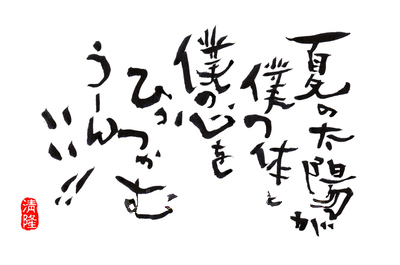 夏の太陽が
僕の体と
僕の心を
ひっつかむ
うーん!!
清隆